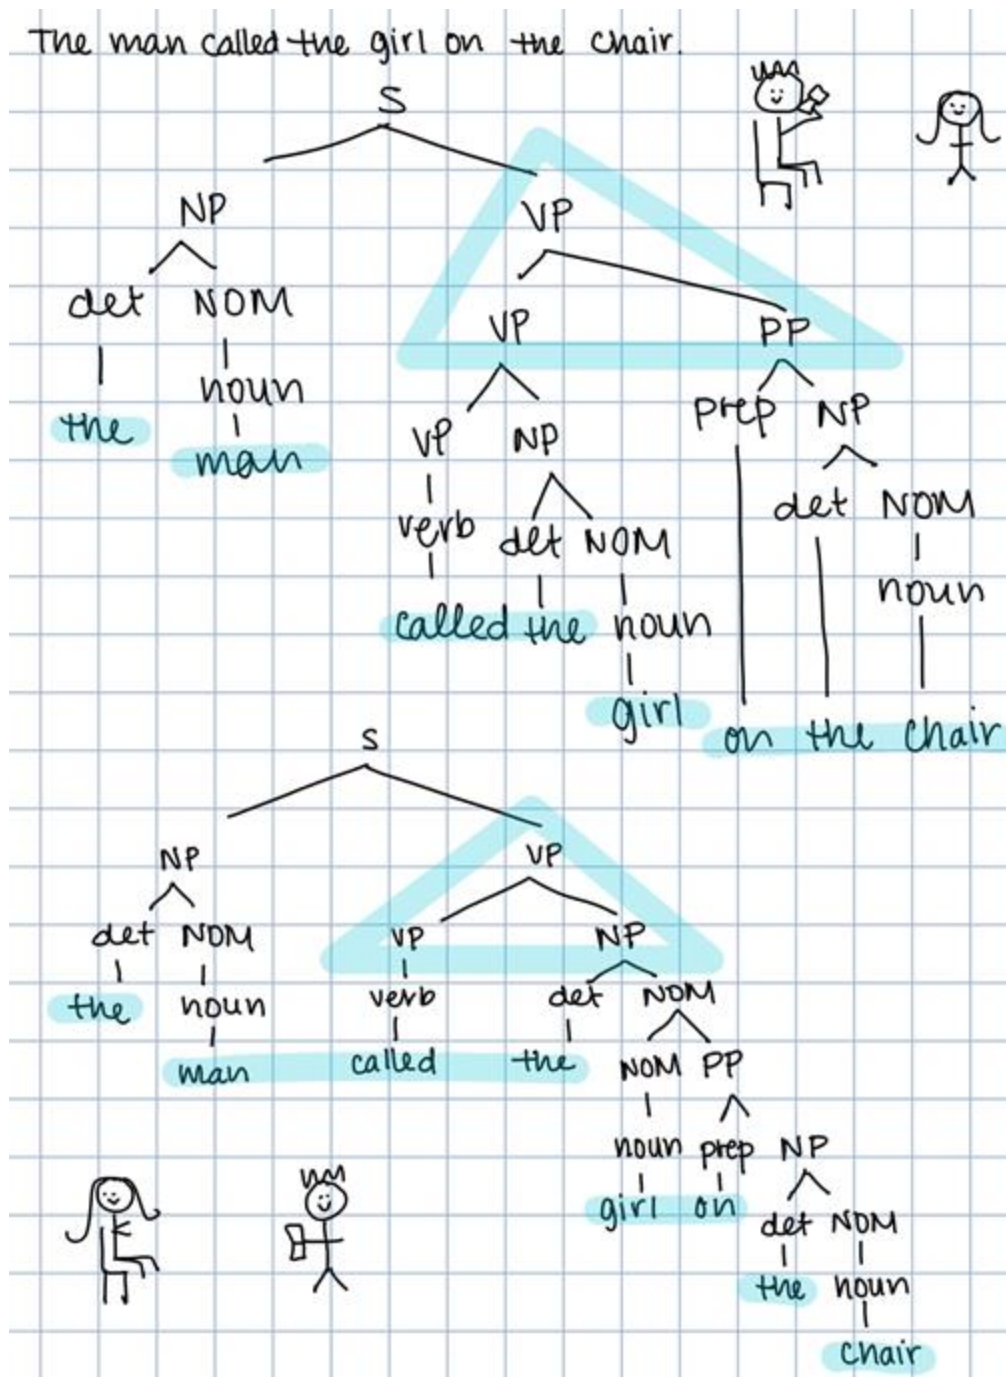 The man called the girl on the chair.
S
NP VP
det NOM VP PP
noun VP NP prep NP
the man verb det NOM det NOM
called the noun noun
girl on the chair
S
NP VP
det NOM VP NP
the noun verb det NOM
man called the NOM PP
noun prep NP
girl on det NOM
the noun
chair